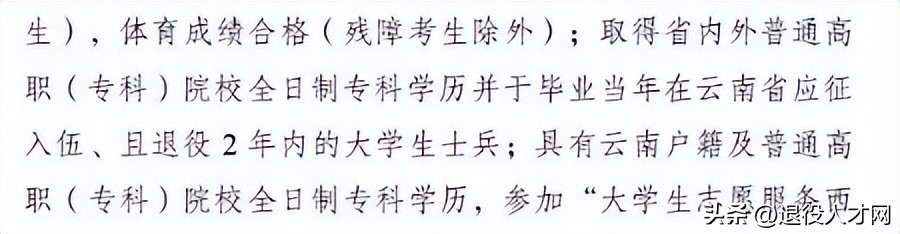 生），体育成绩合格（残障考生除外）；取得省内外普通高
职（专科）院校全日制专科学历并于毕业当年在云南省应征
入伍、且退役 2 年内的大学生士兵；具有云南户籍及普通高
职（专科）院校全日制专科学历，参加“大学生志愿服务西
头条 @退役人才网